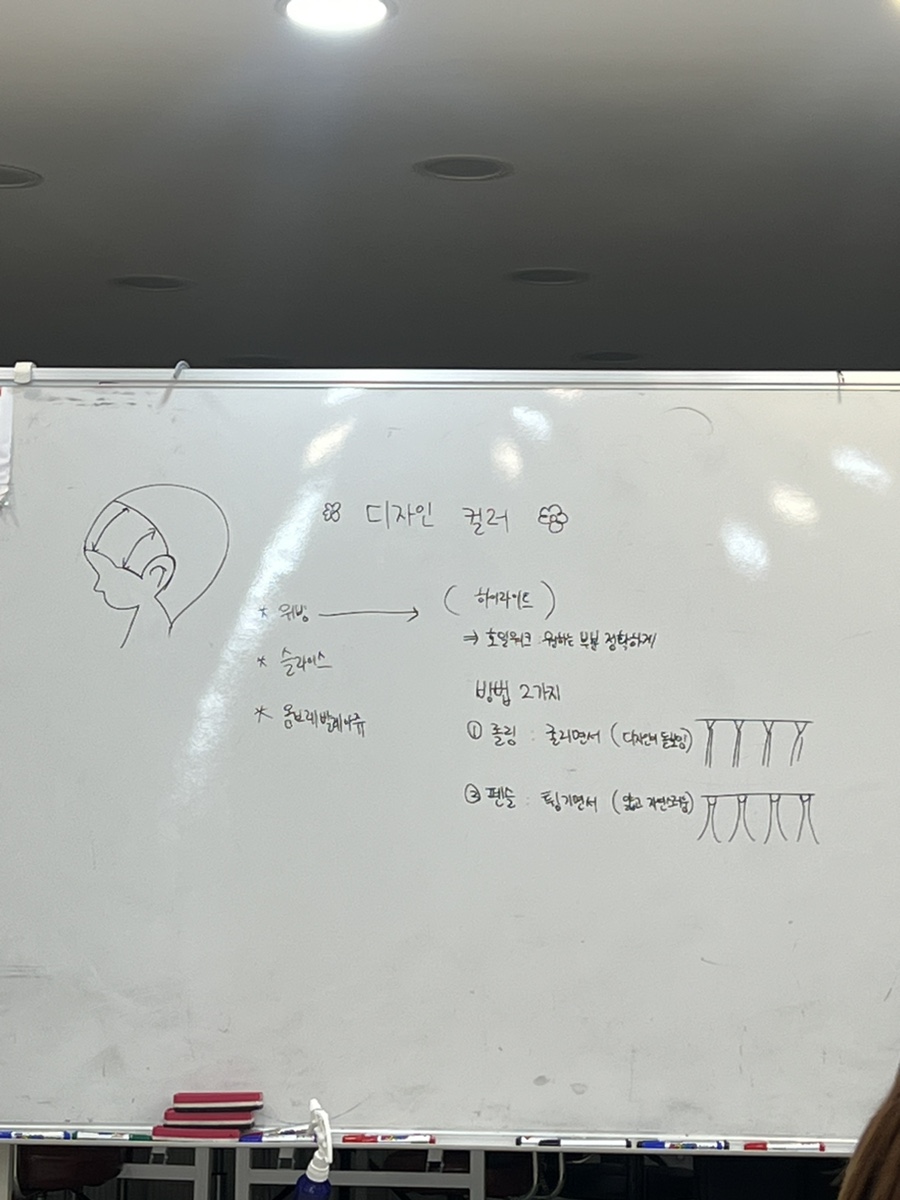 디자인 컬러
* 위빙 → ( 하이라이트 )
⇒ 호일워크 원하는 부분 정확하게
* 슬라이스
방법 2가지
* 옴브레발레아쥬
① 롤링 : 굴리면서 (디자인이 돋보임)
② 펜슬 : 튕기면서 (얇고 자연스러움)